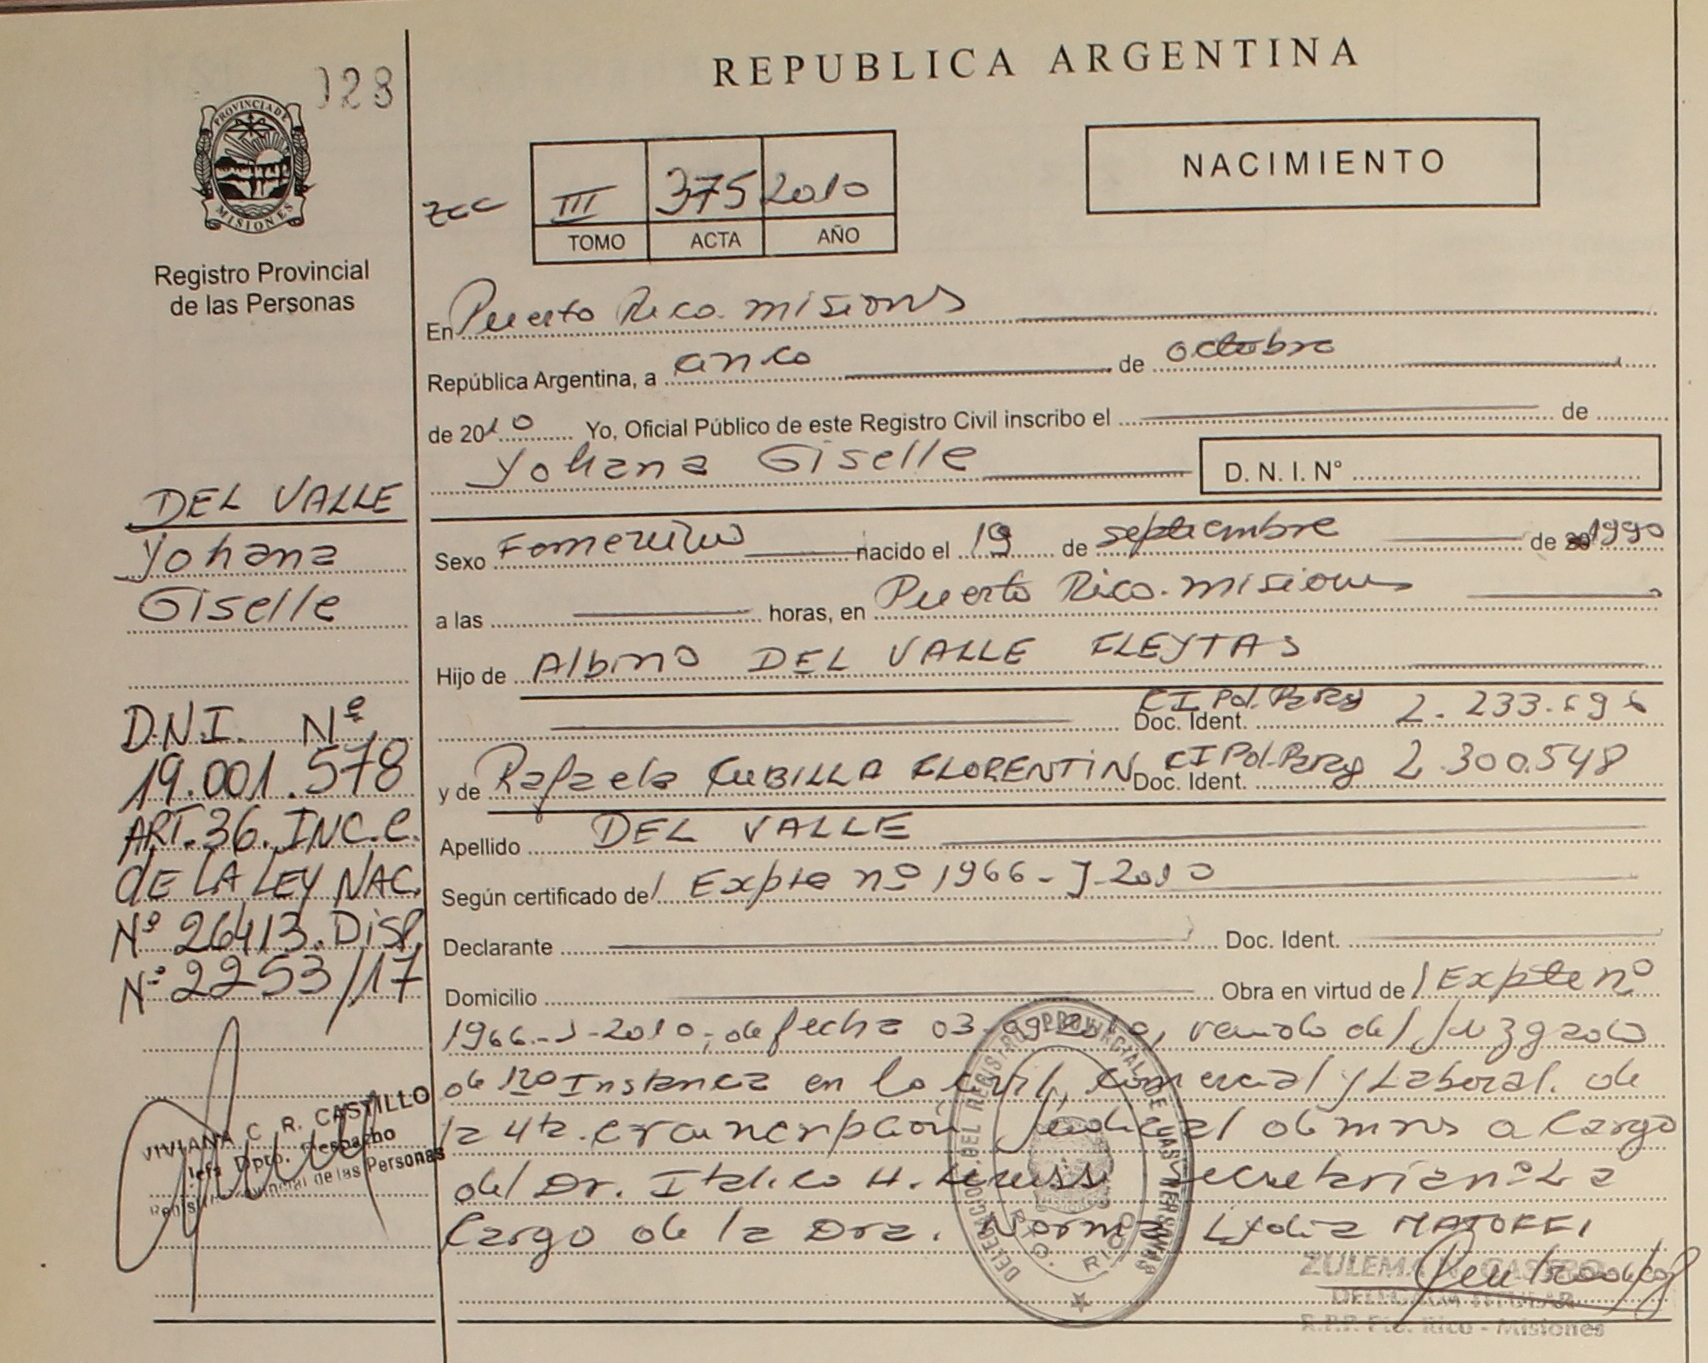 REPUBLICA ARGENTINA
128
PROVINCIA DE
MISIONES
Registro Provincial
de las Personas
NACIMIENTO
zcc III 375 2010
TOMO ACTA AÑO
En Puerto Rico. misions
República Argentina, a cinco de octubre
de 2010 Yo, Oficial Público de este Registro Civil inscribo el de
Yohana Giselle D. N. I. N°
DEL VALLE
Yohana
Giselle
Sexo Femenino nacido el 19 de septiembre de 1990
a las horas, en Puerto Rico. misiones
Hijo de Albino DEL VALLE FLEYTAS
CI Pol. Parag
Doc. Ident. 2.233.
y de Rafaela CUBILLA FLORENTIN CI Pol. Parag Doc. Ident. 2.300.548
Apellido DEL VALLE
Según certificado del Expte nº 1966-J-2010
Declarante Doc. Ident.
Domicilio Obra en virtud del Expte nº
1966-J-2010, de fecha 03-09-2010, venido del Juzgado
de 1ra Instancia en lo civil, Comercial y Laboral. de
la 4ta. circunscripción Judicial de mns a Cargo
del Dr. Italico H. secretaria nº 2 a
Cargo de la Dra. Norma Lydia
D.N.I. Nº
19.001.578
ART.36.INC.C.
de LA LEY NAC.
Nº 26413.DISP.
Nº 2253/17
VIVIANA C. R. CASTILLO
Jefa Dpto. Despacho
Registro Provincial de las Personas
DELEGACION DEL REGISTRO PROVINCIAL DE LAS PERSONAS
PTO. RICO
ZULEMA N. CASTRO
DELEGADA TITULAR
R.P.P. Pto. Rico - Misiones